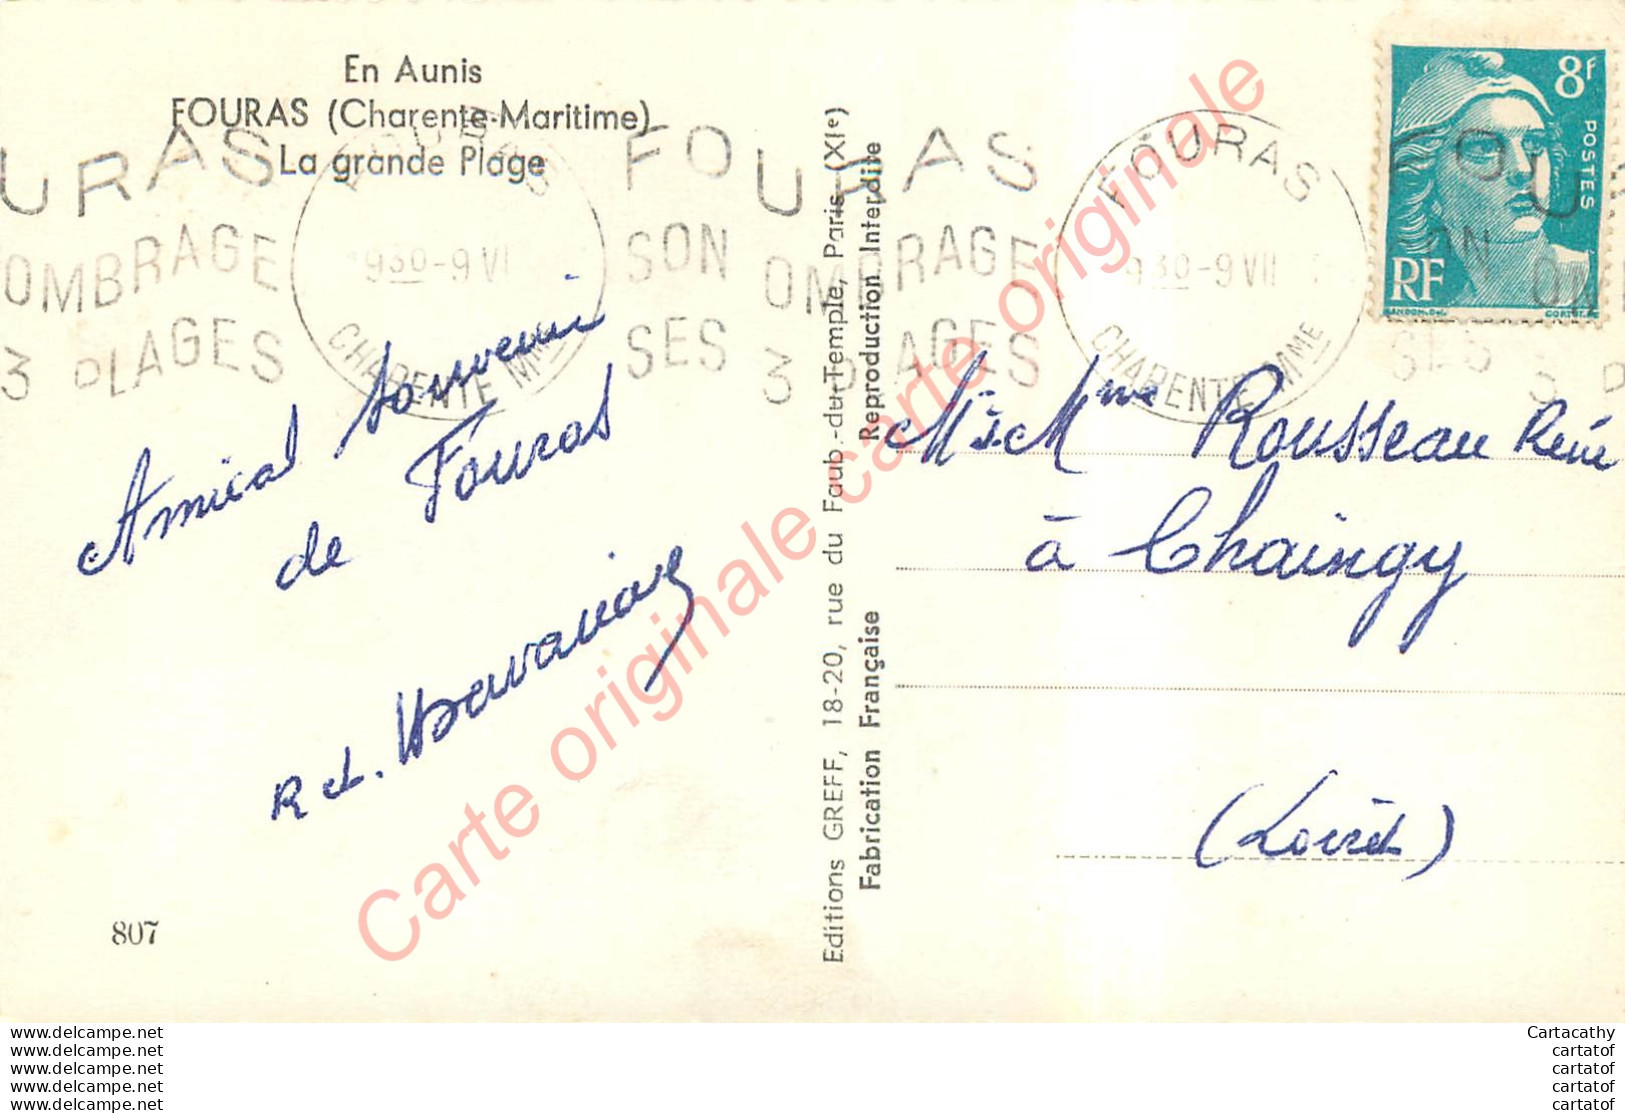 En Aunis
FOURAS (Charente-Maritime)
La grande Plage
URAS
OMBRAGE
3 PLAGES
FOURAS
930-9 VI
CHARENTE Mme
FOURAS
SON OMBRAGE
SES 3 PLAGES
FOURAS
930-9 VII
CHARENTE Mme
FOU
ON O
SES 3 P
8f
POSTES
RF
GANDON.Del.
CORTOT.SC
Amical souvenir
de Fouras
R et.
M. & Mme Rousseau René
à Chaingy
(Loiret)
Editions GREFF, 18-20, rue du Faub.-du-Temple, Paris (XIe)
Fabrication Française
Reproduction Interdite
807
Carte originale carte originale carte originale
www.delcampe.net
www.delcampe.net
www.delcampe.net
www.delcampe.net
www.delcampe.net
Cartacathy
cartatof
cartatof
cartatof
cartatof